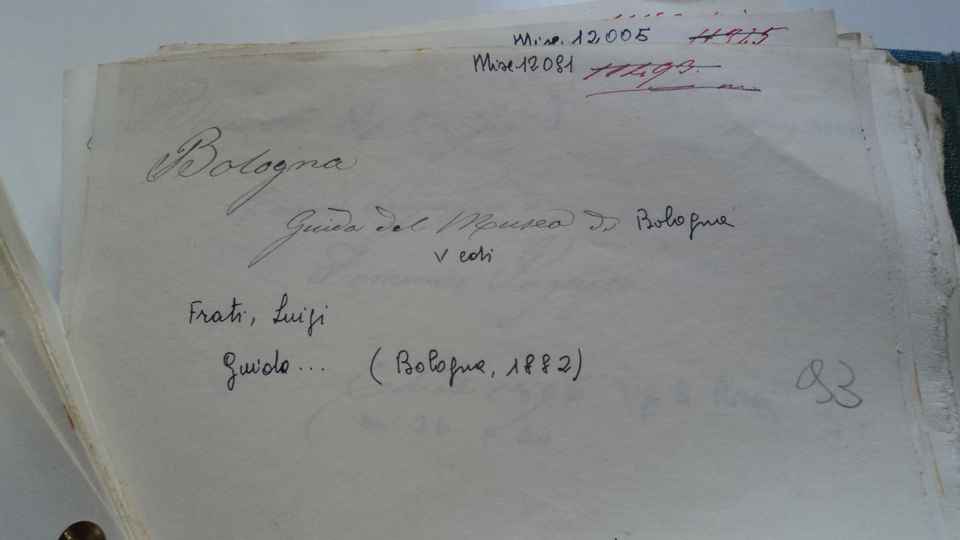 Misc. 12005 11975
Misc 12081 11493
Bologna
Guida del Museo di Bologna
vedi
Frati, Luigi
Guida... (Bologna, 1882)
93